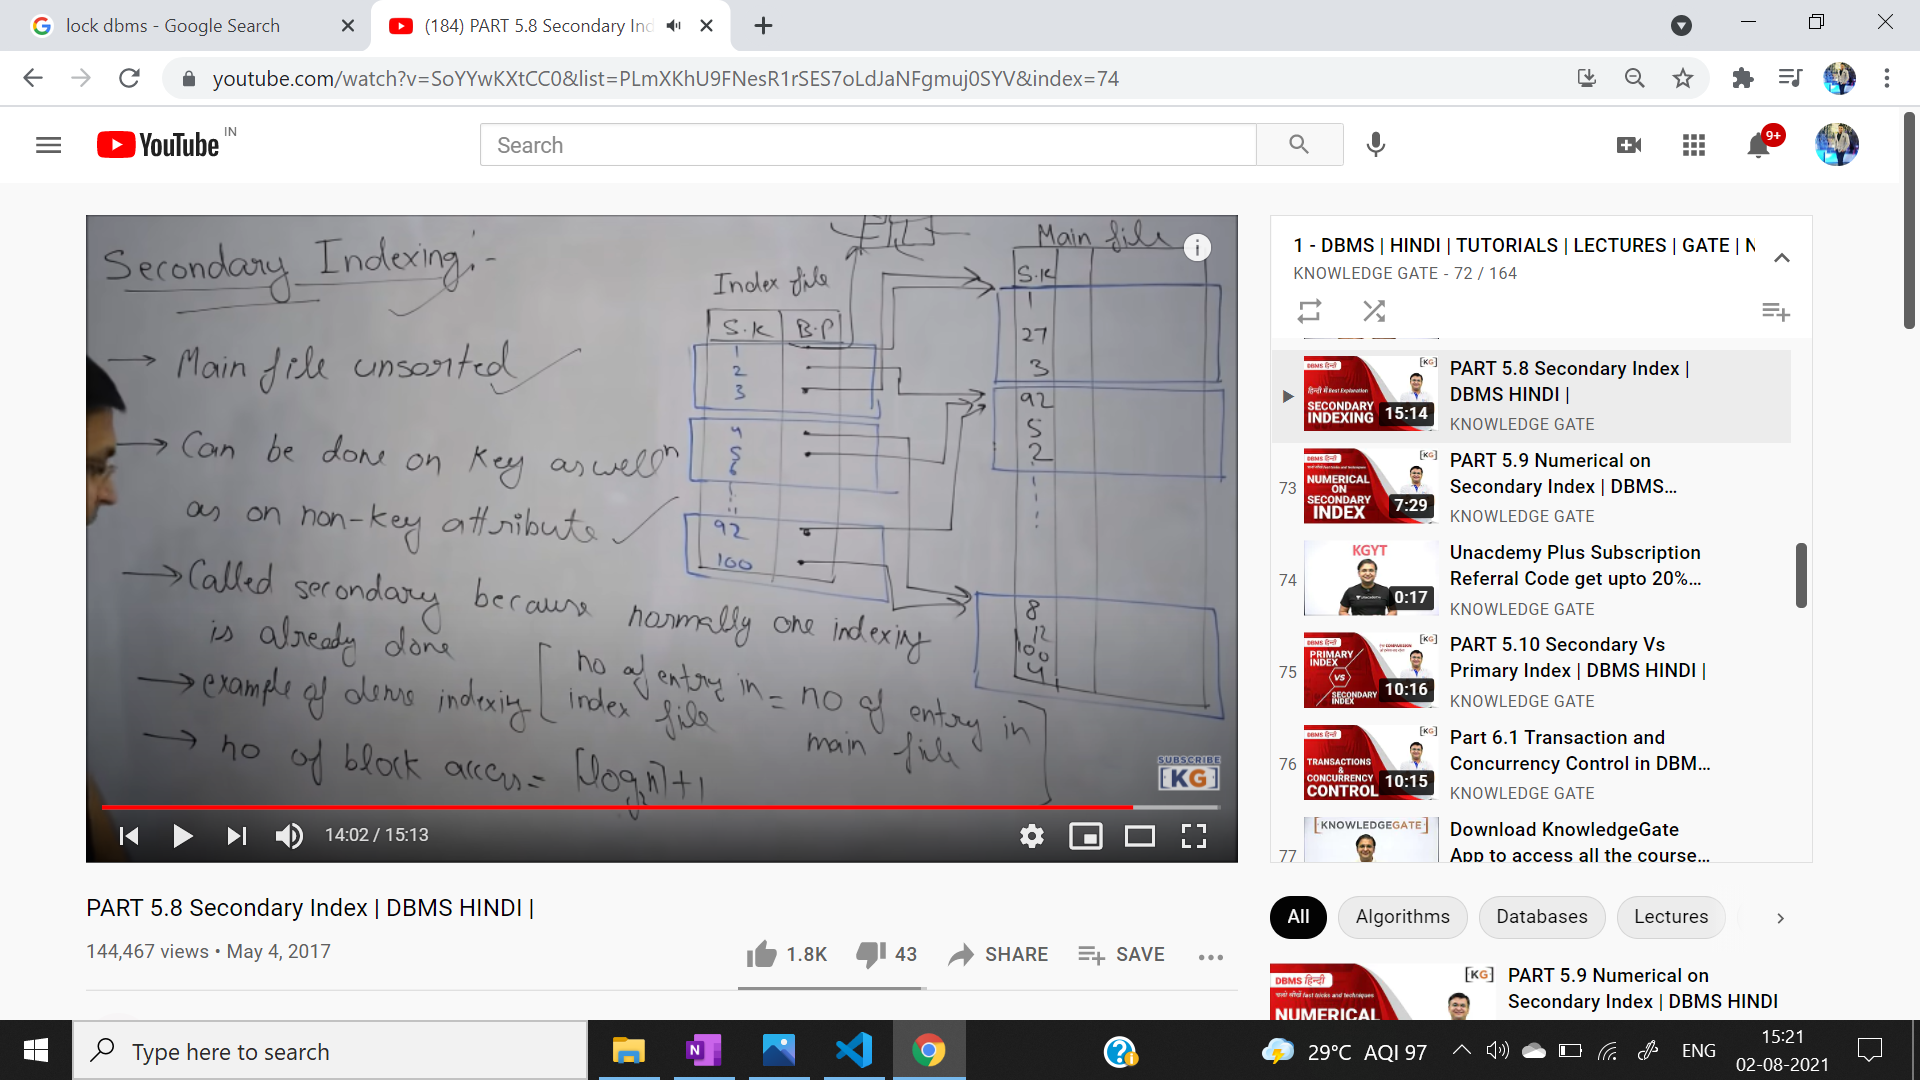 lock dbms - Google Search
(184) PART 5.8 Secondary Ind
youtube.com/watch?v=SoYYwKXtCC0&list=PLmXKhU9FNesR1rSES7oLdJaNFgmuj0SYV&index=74
YouTube IN
Search
9+
Secondary Indexing:-
→ Main file unsorted
→ Can be done on key aswell
as on non-key attribute
→ Called secondary because normally one indexing
is already done
→ example of dense indexing [no of entry in index file = no of entry in main file]
→ no of block access = ⌈log₂n⌉+1
Index file
S.K B.P
1
2
3
4
5
6
92
100
Main file
S.K
1
27
3
92
5
2
8
12
100
4
SUBSCRIBE
[KG]
14:02 / 15:13
1 - DBMS | HINDI | TUTORIALS | LECTURES | GATE | N
KNOWLEDGE GATE - 72 / 164
DBMS हिन्दी
[KG]
SECONDARY
INDEXING
15:14
PART 5.8 Secondary Index |
DBMS HINDI |
KNOWLEDGE GATE
73
DBMS हिन्दी
[KG]
NUMERICAL
ON
SECONDARY
INDEX
7:29
PART 5.9 Numerical on
Secondary Index | DBMS...
KNOWLEDGE GATE
74
KGYT
0:17
Unacdemy Plus Subscription
Referral Code get upto 20%...
KNOWLEDGE GATE
75
DBMS हिन्दी
[KG]
PRIMARY
INDEX
VS
SECONDARY
INDEX
10:16
PART 5.10 Secondary Vs
Primary Index | DBMS HINDI |
KNOWLEDGE GATE
76
DBMS हिन्दी
[KG]
TRANSACTIONS
&
CONCURRENCY
CONTROL
10:15
Part 6.1 Transaction and
Concurrency Control in DBM...
KNOWLEDGE GATE
77
[KNOWLEDGEGATE]
Download KnowledgeGate
App to access all the course...
PART 5.8 Secondary Index | DBMS HINDI |
144,467 views • May 4, 2017
1.8K
43
SHARE
SAVE
All
Algorithms
Databases
Lectures
DBMS हिन्दी
[KG]
NUMERICAL
PART 5.9 Numerical on
Secondary Index | DBMS HINDI
Type here to search
29°C AQI 97
ENG
15:21
02-08-2021